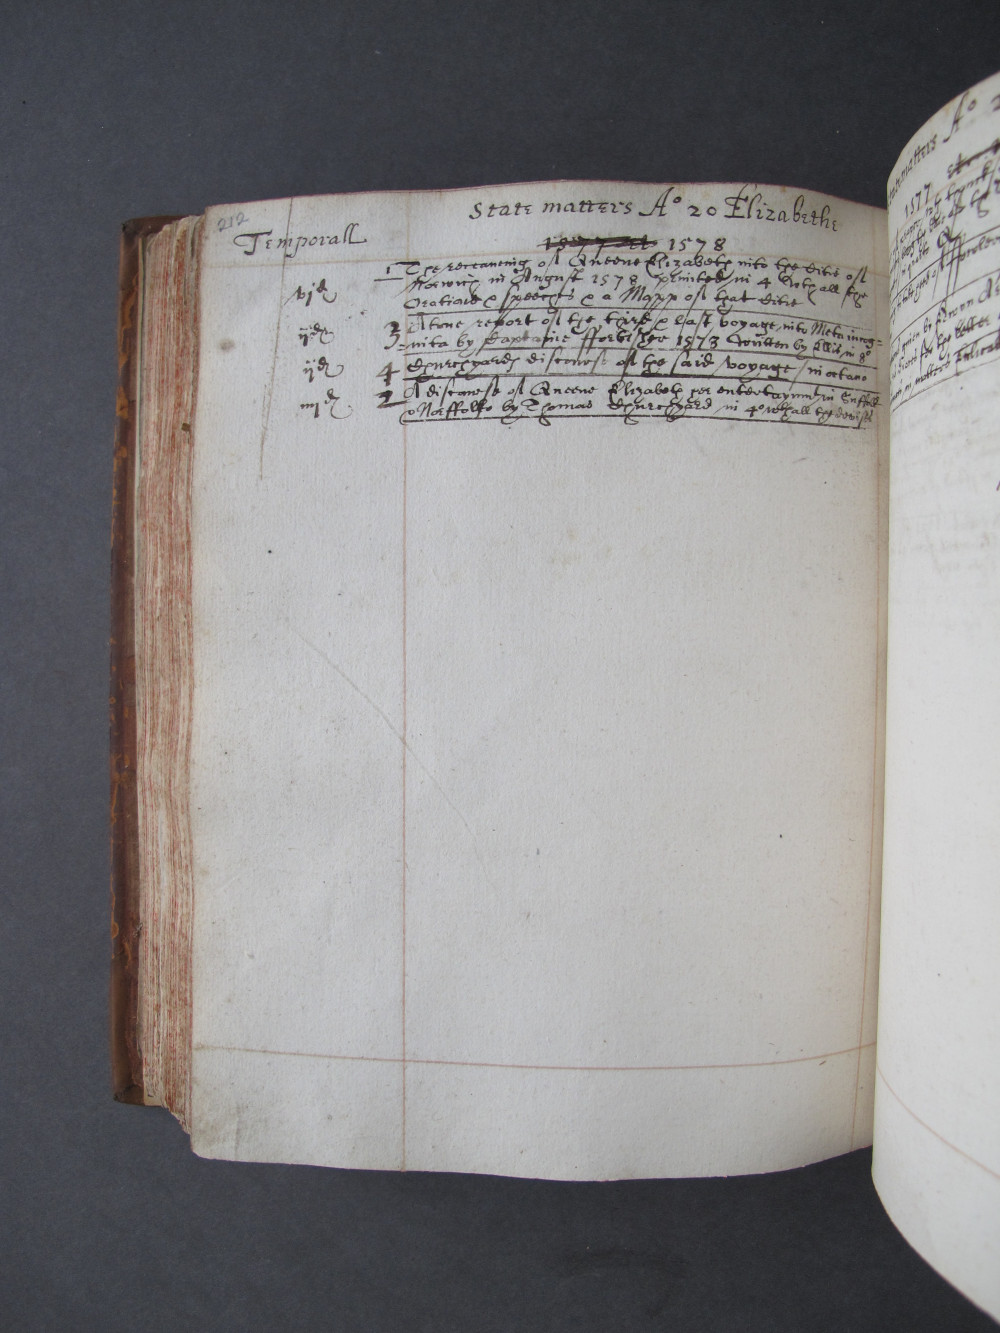 212
State matters Ao 20 Elizabethe
Temporall
1577 et 1578
vjd 1 The receaueing of Queene Elizabeth into the Citie of
Norwich in August 1578 printed in 4 with all the
Orations & speeches & a Mapp of that Citie
ijd 3 A true report of the third & last voyage into Meta incog=
=nita by Captaine fforbisher 1578 written by Ellis in 8o
ijd 4 Churchyards discourse of the said voyage in octavo
iiijd 2 A discourse of Queene Elizabeth her entertaynmt in Suffolk
& Norffolke by Thomas Churchyard in 4o with all the devises
State matters Ao
1577